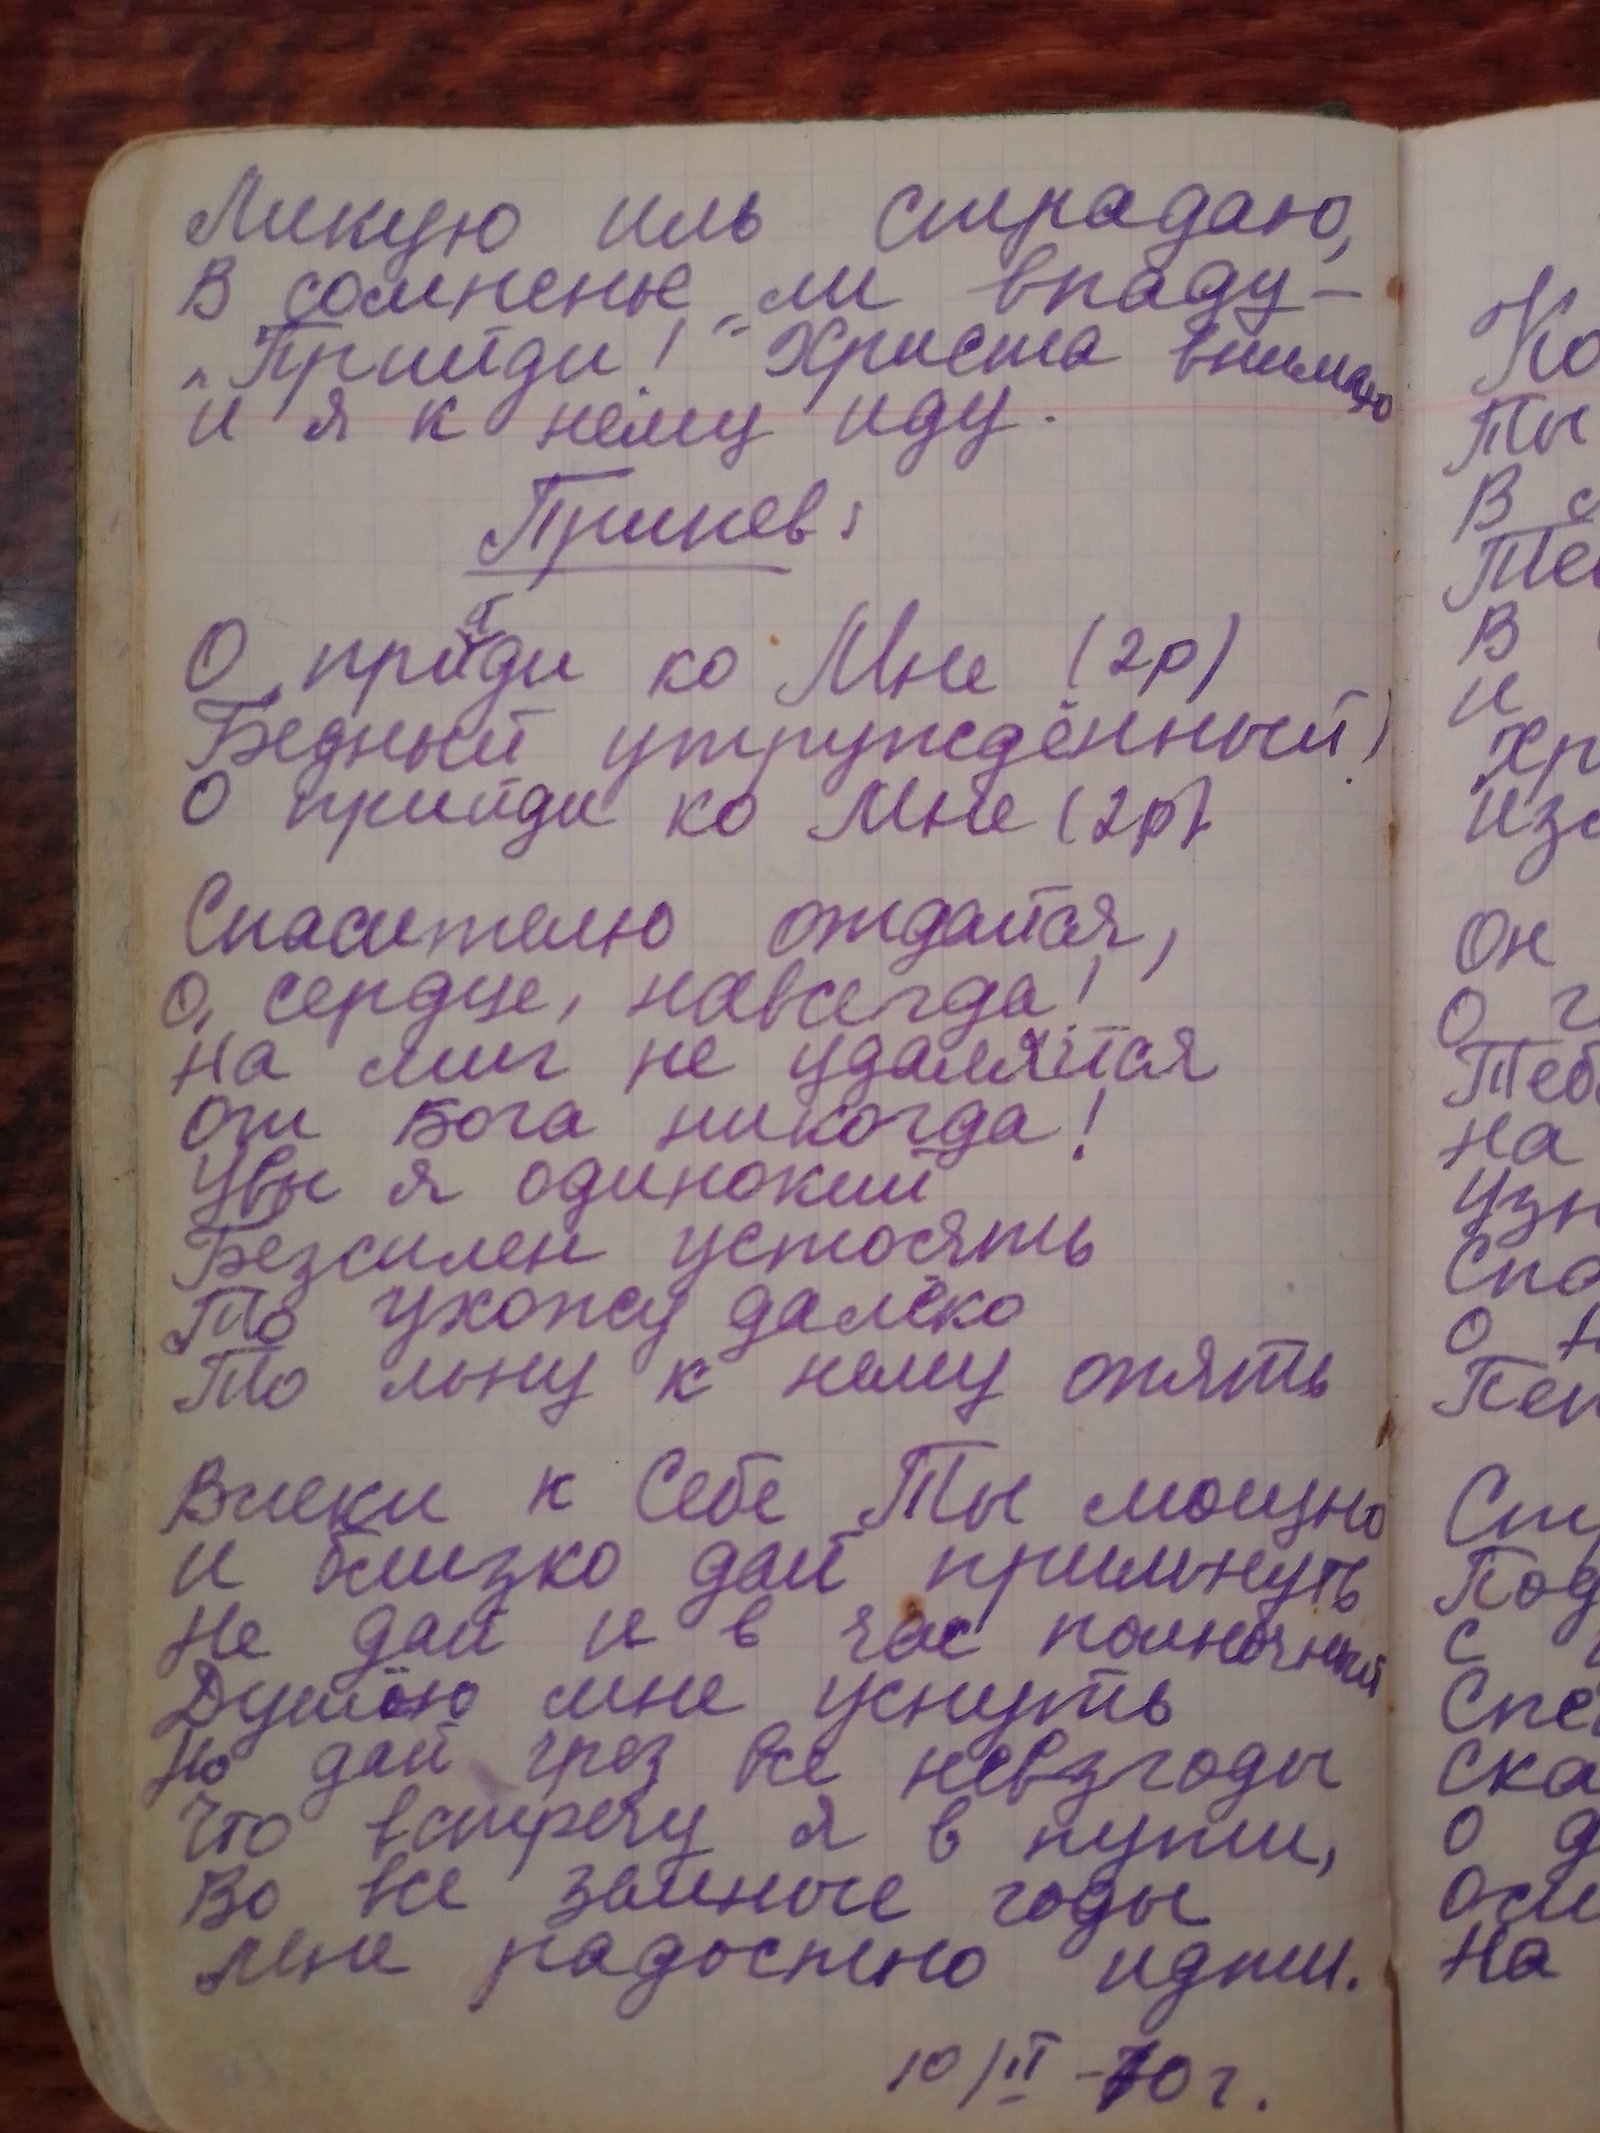 Ликую иль страдаю,
В сомненье ли впаду –
„Прийди!" Христа внимаю
и я к нему иду.
Припев:
О прийди ко Мне (2р)
Бедный утруждённый!
О прийди ко Мне (2р)
Спасителю отдайся,
О, сердце, навсегда!
На миг не удаляйся
От Бога никогда!
Увы я одинокий
Безсилен устоять
То ухожу далёко
То льну к нему опять
Влеки к Себе Ты мощно
и близко дай прильнуть
Не дай и в час полночный
Душою мне уснуть
Но дай чрез все невзгоды
Что встречу я в пути,
Во все земные годы
Мне радостно идти.
10/II -70 г.
Ко
Ты
В с
Те
В
и
Хр
Из
Он
О
Теб
На
Узн
Спа
О н
Пе
Ст
Под
С
Спе
Ска
О д
Осе
На